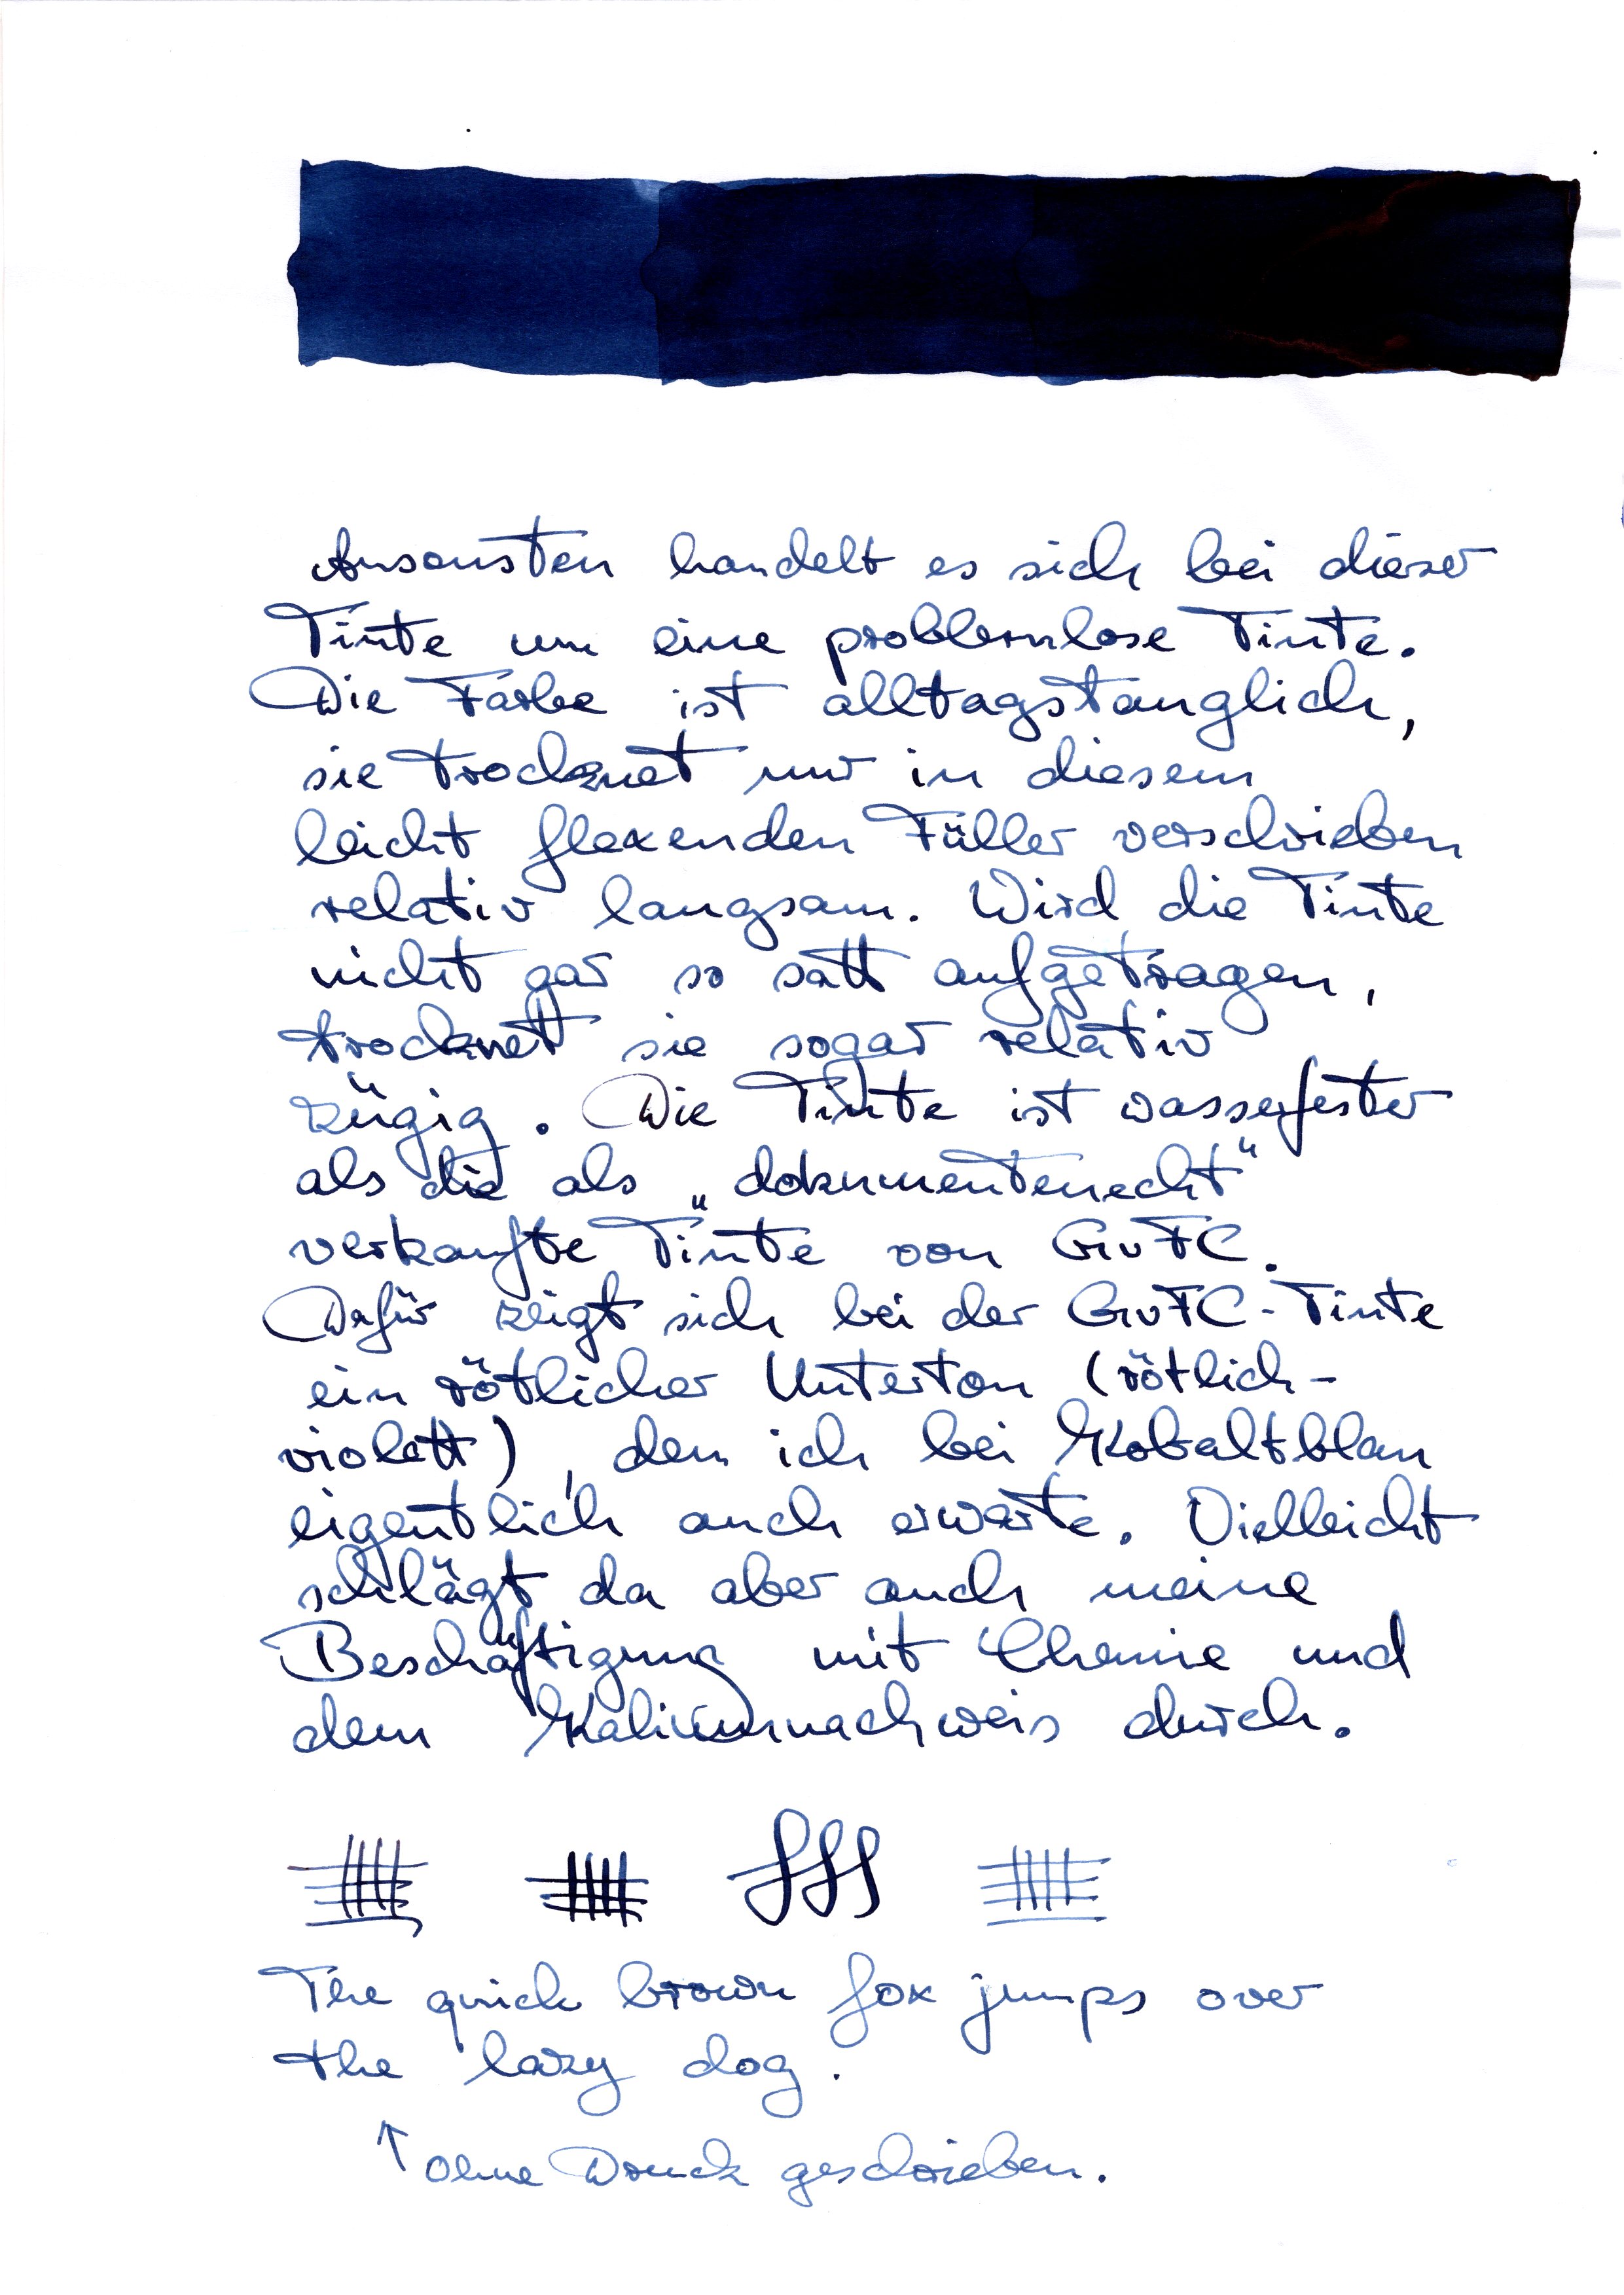 Ansonsten handelt es sich bei dieser
Tinte um eine problemlose Tinte.
Die Farbe ist alltagstauglich,
sie trocknet nur in diesem
leicht flexenden Füller verschrieben
relativ langsam. Wird die Tinte
nicht gar so satt aufgetragen,
trocknet sie sogar relativ
zügig. Die Tinte ist wasserfester
als die als „dokumentenecht“
verkaufte Tinte von GvFC.
Dafür zeigt sich bei der GvFC-Tinte
ein rötlicher Unterton (rötlich-
violett), den ich bei Kobaltblau
eigentlich auch erwarte. Vielleicht
schlägt da aber auch meine
Beschäftigung mit Chemie und
dem Kaliumnachweis durch.
fff
The quick brown fox jumps over
the lazy dog.
↑ Ohne Druck geschrieben.